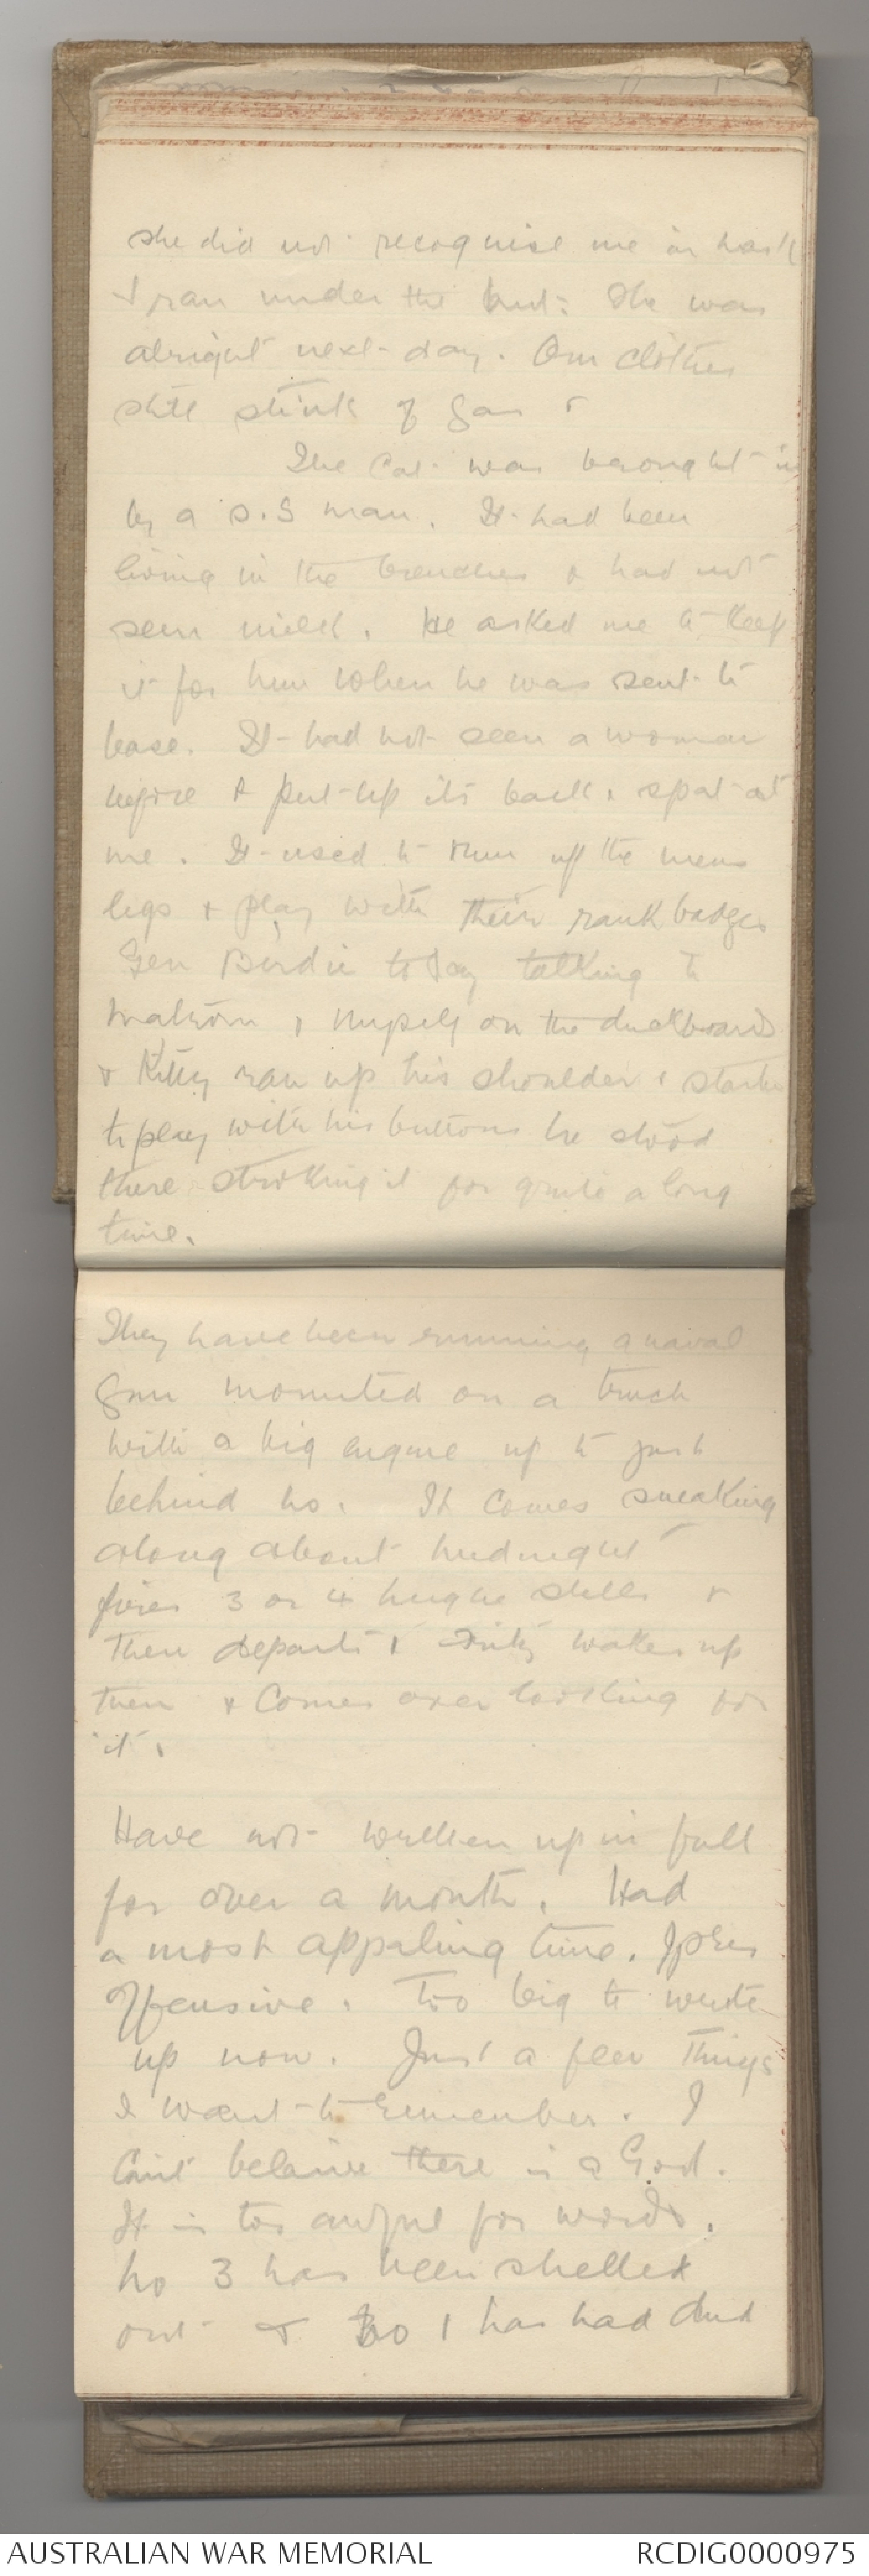 she did not recognise me in mask
& ran under the hut. She was
alright next day. Our clothes
still stink of gas &
The Cat was brought in
by a S.S man. It had been
living in the trenches & had not
seen milk. He asked me to keep
it for him when he was sent to
base. It had not seen a woman
before & put up its back & spat at
me. It used to run up the mens
legs & play with their rank badges
Gen Birdie today talking to
Matron & myself on the duckboards
& Kitty ran up his shoulder & started
to play with his buttons he stood
there stroking it for quite a long
time.
They have been running a naval
gun mounted on a truck
with a big engine up to just
behind us. It comes sneaking
along about midnight
fires 3 or 4 hughe shells &
then departs & Fritz wakes up
then & comes over looking for
it.
Have not written up in full
for over a month. Had
a most appaling time. Ypres
Offensive. Too big to write
up now. Just a few things
I want to remember. I
Cant beleive there is a God.
It is too awful for words.
No 3 has been shelled
out & No 1 has had dud
AUSTRALIAN WAR MEMORIAL
RCDIG0000975